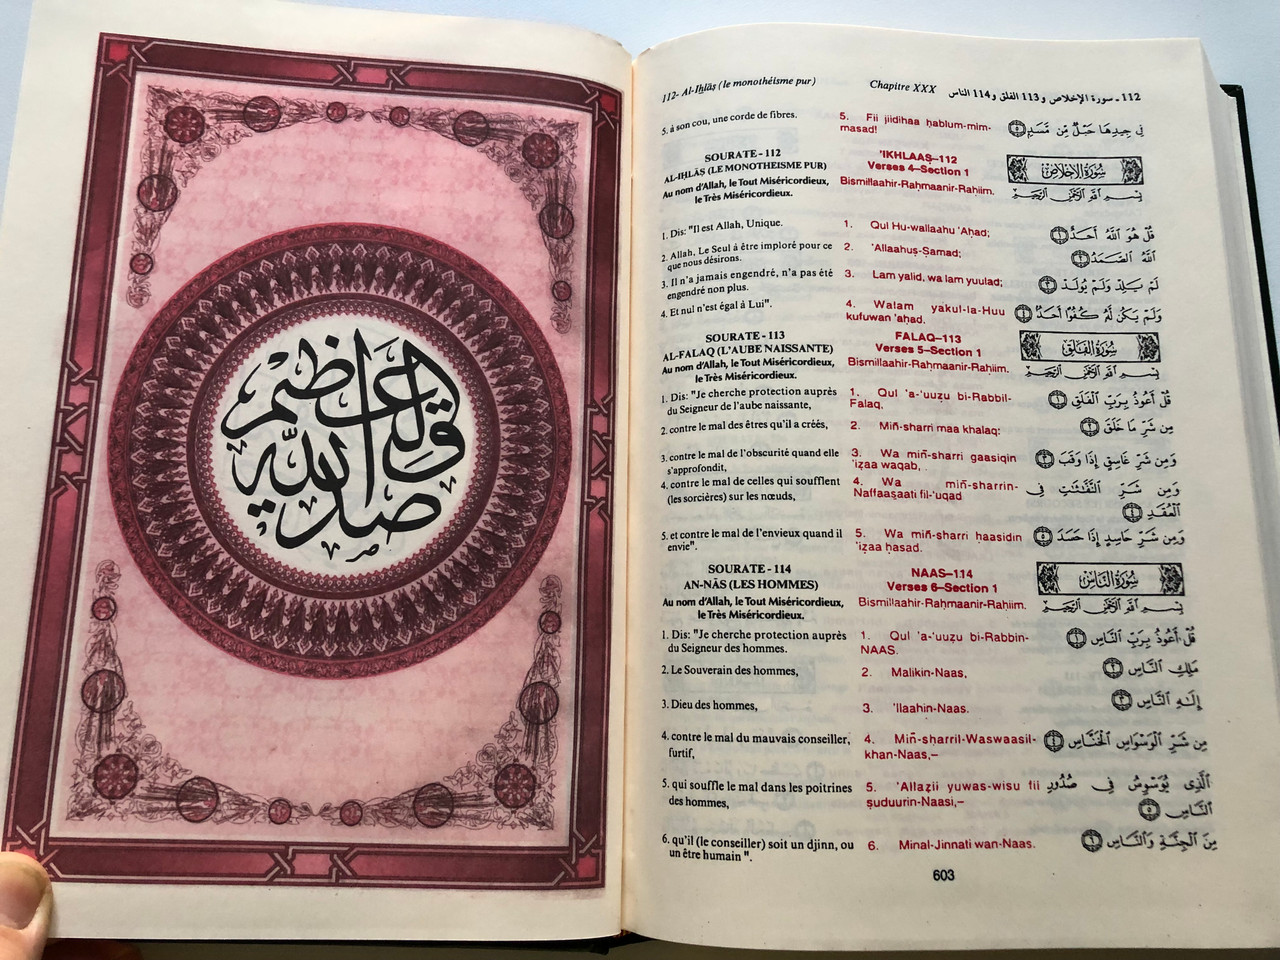 صدق الله العظيم
112- Al-Iḫlāṣ (le monothéisme pur) Chapitre XXX 112 ـ سورة الإخلاص و 113 الفلق و 114 الناس
5. à son cou, une corde de fibres.
5. Fii jiidihaa ḥablum-mim-
masad!
فِي جِيدِهَا حَبْلٌ مِّن مَّسَدٍ ٥
SOURATE - 112
AL-IḪLĀṢ (LE MONOTHEISME PUR)
Au nom d'Allah, le Tout Miséricordieux,
le Très Miséricordieux.
'IKHLAAṢ–112
Verses 4–Section 1
Bismillaahir-Raḥmaanir-Raḥiim.
سُورَةُ الإِخْلَاصِ
بِسْمِ اللَّهِ الرَّحْمَٰنِ الرَّحِيمِ
1. Dis: "Il est Allah, Unique.
1. Qul Hu-wallaahu 'Aḥad;
قُلْ هُوَ ٱللَّهُ أَحَدٌ ١
2. Allah, Le Seul à être imploré pour ce
que nous désirons.
2. 'Allaahuṣ-Ṣamad;
ٱللَّهُ ٱلصَّمَدُ ٢
3. Il n'a jamais engendré, n'a pas été
engendré non plus.
3. Lam yalid, wa lam yuulad;
لَمْ يَلِدْ وَلَمْ يُولَدْ ٣
4. Et nul n'est égal à Lui".
4. Walam yakul-la-Huu
kufuwan 'aḥad.
وَلَمْ يَكُن لَّهُ كُفُوًا أَحَدٌ ٤
SOURATE - 113
AL-FALAQ (L'AUBE NAISSANTE)
Au nom d'Allah, le Tout Miséricordieux,
le Très Miséricordieux.
FALAQ–113
Verses 5–Section 1
Bismillaahir-Raḥmaanir-Raḥiim.
سُورَةُ الفَلَقِ
بِسْمِ اللَّهِ الرَّحْمَٰنِ الرَّحِيمِ
1. Dis: "Je cherche protection auprès
du Seigneur de l'aube naissante,
1. Qul 'a-'uuẓu bi-Rabbil-
Falaq,
قُلْ أَعُوذُ بِرَبِّ ٱلْفَلَقِ ١
2. contre le mal des êtres qu'il a créés,
2. Miñ-sharri maa khalaq:
مِن شَرِّ مَا خَلَقَ ٢
3. contre le mal de l'obscurité quand elle
s'approfondit,
3. Wa miñ-sharri gaasiqin
'iẓaa waqab,
وَمِن شَرِّ غَاسِقٍ إِذَا وَقَبَ ٣
4. contre le mal de celles qui soufflent
(les sorcières) sur les nœuds,
4. Wa miñ-sharrin-
Naffaaṣaati fil-'uqad
وَمِن شَرِّ ٱلنَّفَّٰثَٰتِ فِي
ٱلْعُقَدِ ٤
5. et contre le mal de l'envieux quand il
envie".
5. Wa miñ-sharri ḥaasidin
'iẓaa ḥasad.
وَمِن شَرِّ حَاسِدٍ إِذَا حَسَدَ ٥
SOURATE - 114
AN-NĀS (LES HOMMES)
Au nom d'Allah, le Tout Miséricordieux,
le Très Miséricordieux.
NAAS–114
Verses 6–Section 1
Bismillaahir-Raḥmaanir-Raḥiim.
سُورَةُ النَّاسِ
بِسْمِ اللَّهِ الرَّحْمَٰنِ الرَّحِيمِ
1. Dis: "Je cherche protection auprès
du Seigneur des hommes.
1. Qul 'a-'uuẓu bi-Rabbin-
NAAS.
قُلْ أَعُوذُ بِرَبِّ ٱلنَّاسِ ١
2. Le Souverain des hommes,
2. Malikin-Naas,
مَلِكِ ٱلنَّاسِ ٢
3. Dieu des hommes,
3. 'Ilaahin-Naas.
إِلَٰهِ ٱلنَّاسِ ٣
4. contre le mal du mauvais conseiller,
furtif,
4. Miñ-sharril-Waswaasil-
khan-Naas,–
مِن شَرِّ ٱلْوَسْوَاسِ ٱلْخَنَّاسِ ٤
5. qui souffle le mal dans les poitrines
des hommes,
5. 'Allaẓii yuwas-wisu fii
ṣuduurin-Naasi,–
ٱلَّذِي يُوَسْوِسُ فِي صُدُورِ
ٱلنَّاسِ ٥
6. qu'il (le conseiller) soit un djinn, ou
un être humain ".
6. Minal-Jinnati wan-Naas.
مِنَ ٱلْجِنَّةِ وَٱلنَّاسِ ٦
603